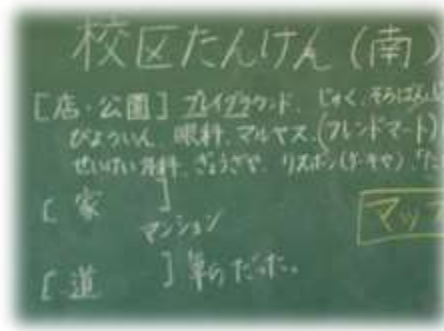 校区たんけん(南)
[店・公園] プレイグラウンド、じゅく、そろばん
びょういん、眼科、マルヤス、(フレンドマート)
せいけい外科、ぎょうざや、リスボン(ケーキや)
[家]
マンション
マップ
[道]